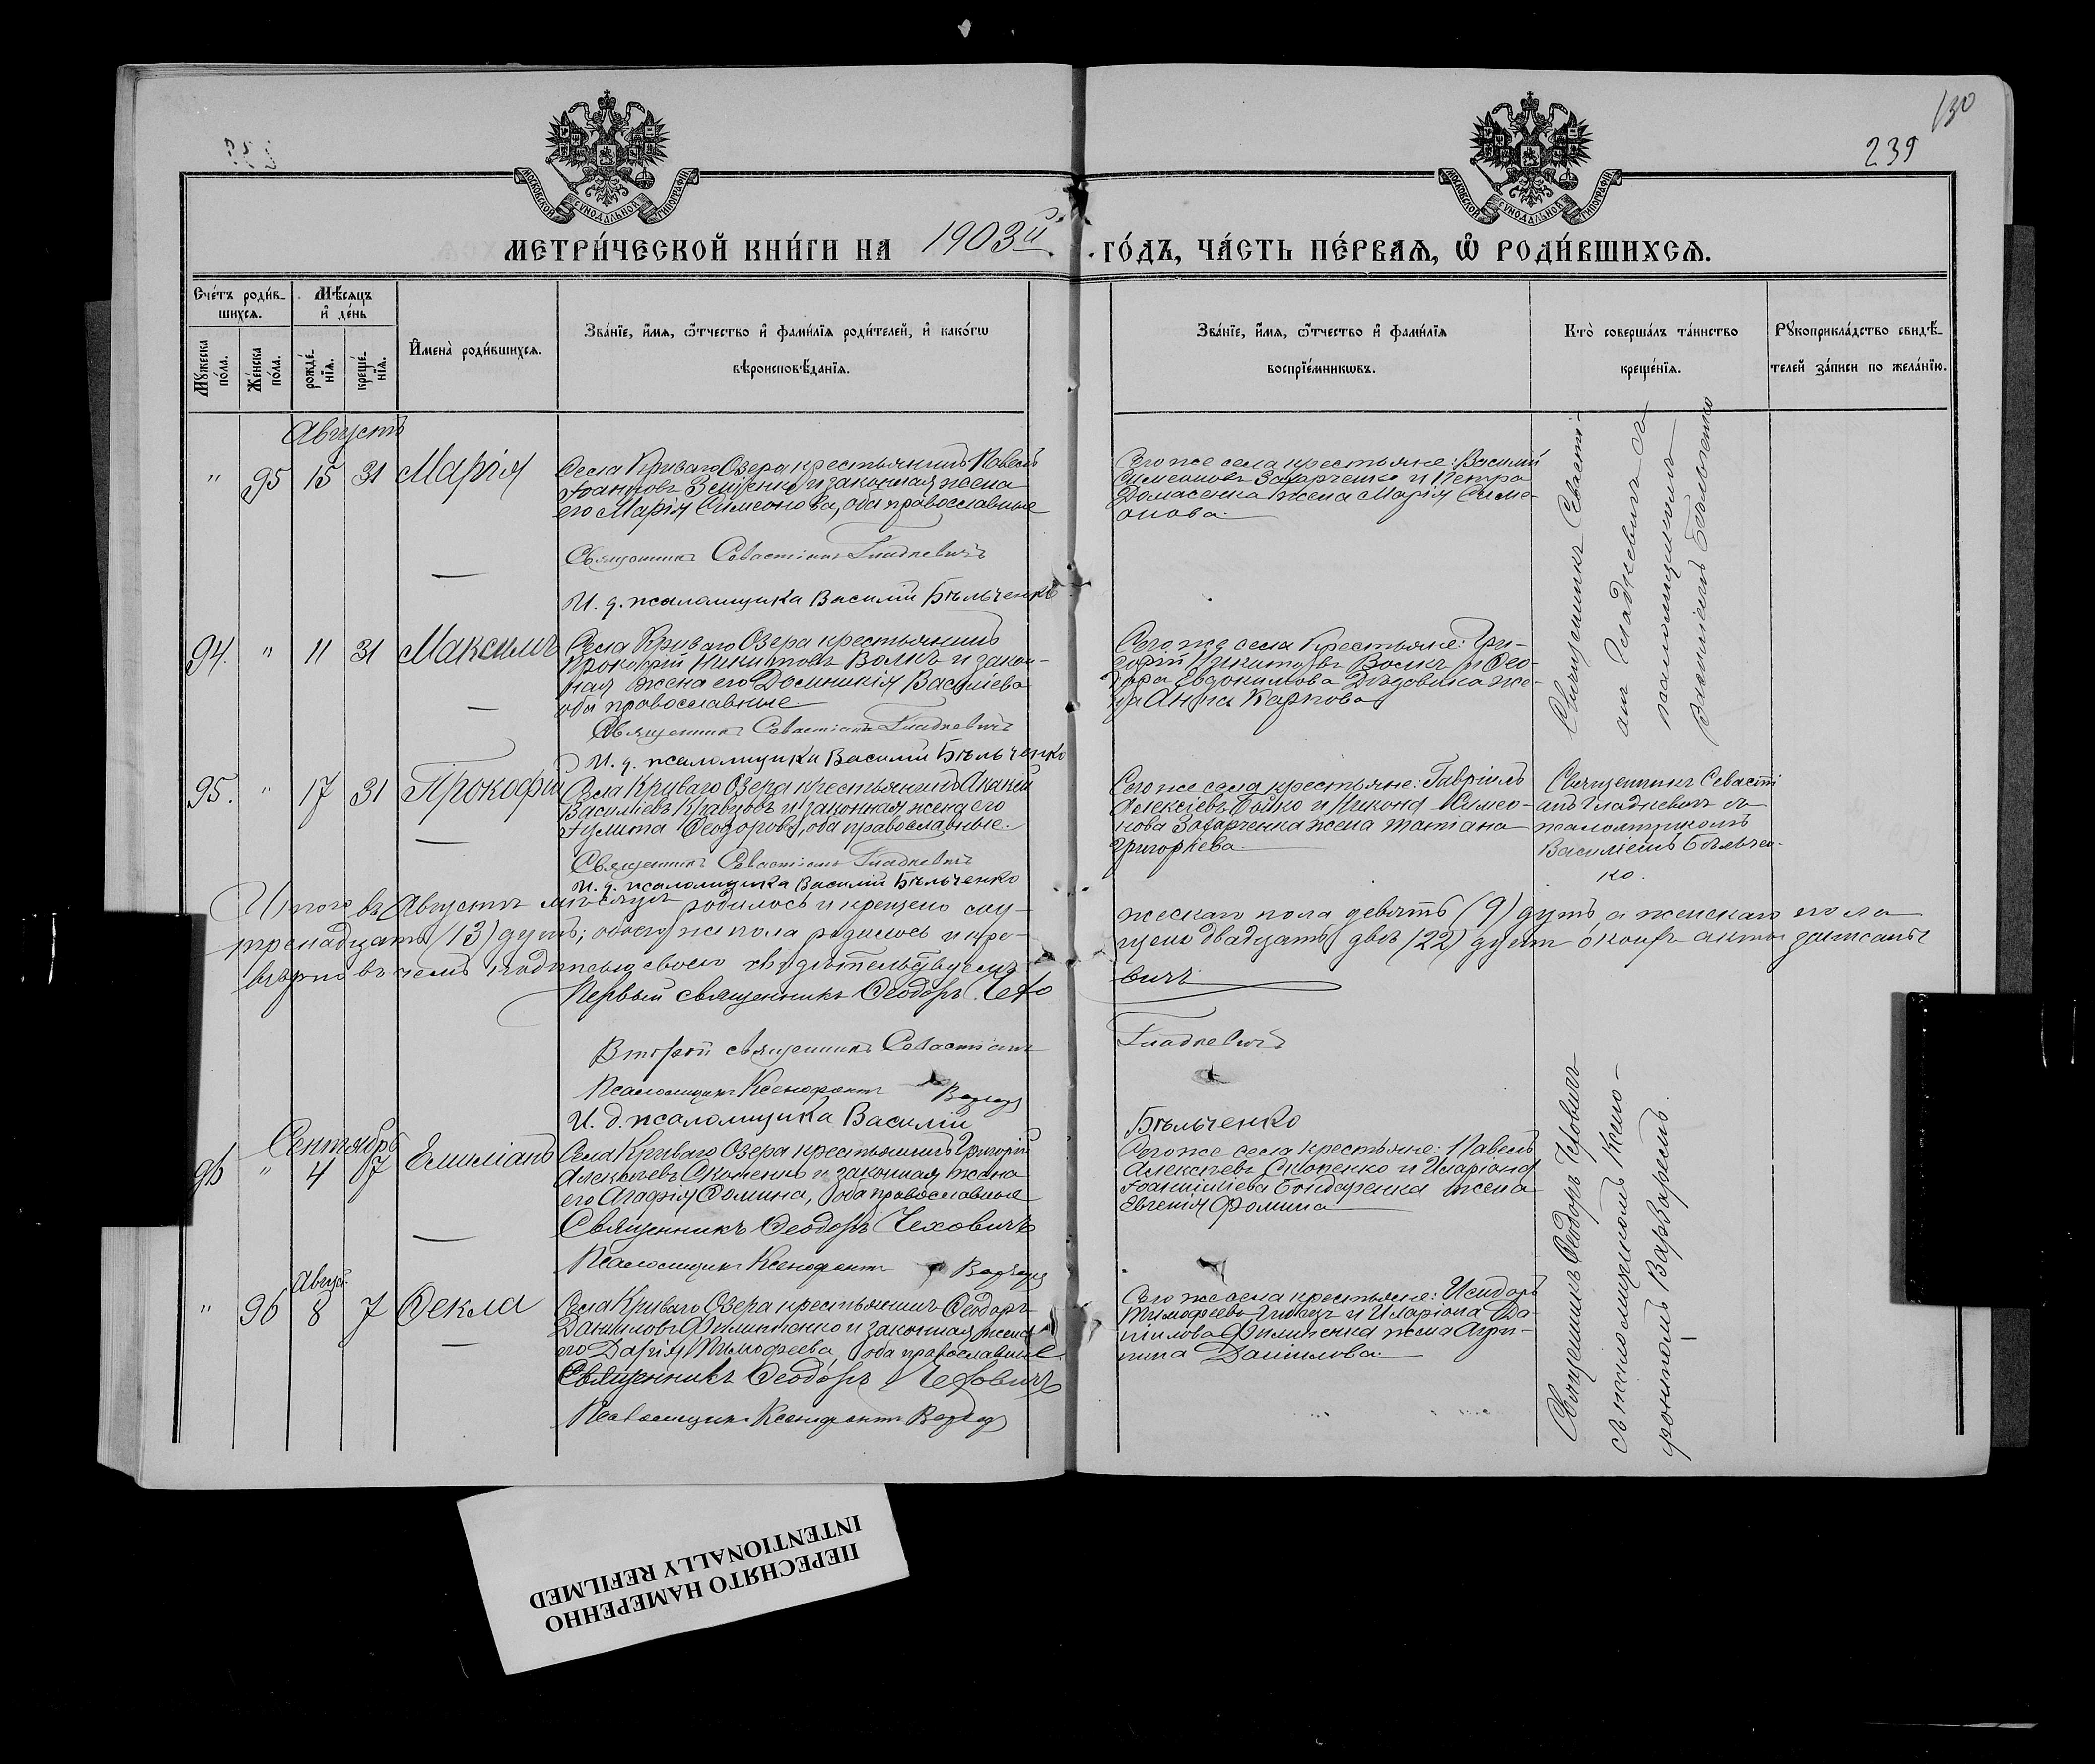 130
239
МОСКОВСКОЙ СУНОДАЛЬНОЙ ТИПОГРАФІИ
МОСКОВСКОЙ СУНОДАЛЬНОЙ ТИПОГРАФІИ
МЕТРИ́ЧЕСКОЙ КНИ́ГИ НА 1903й ГО́ДЪ, ЧА́СТЬ ПЕ́РВАѦ, Ѡ҆ РОДИ́ВШИХСѦ.
Сче́тъ роди́в-
шихсѧ.
Мꙋ́жеска по́ла.
Же́нска по́ла.
Мѣ́сѧцъ и҆ де́нь
рожде́-нїѧ.
креще́-нїѧ.
И҆мена̀ роди́вшихсѧ.
Зва́нїе, и҆́мѧ, ѻ҆́тчество и҆ фами́лїѧ роди́телей, и҆ како́гѡ
вѣроисповѣ́данїѧ.
Зва́нїе, и҆́мѧ, ѻ҆́тчество и҆ фами́лїѧ
воспрїе́мникѡвъ.
Кто̀ соверша́лъ та́инство
креще́нїѧ.
Рꙋкоприкла́дство свидѣ́-
телей за́писи по жела́нїю.
Августъ
" 95 15 31 Марія
Села Криваго Озера крестьянинъ Павелъ
Іоанновъ и законная жена
его Марія Симеонова, оба православные
Священникъ Севастіанъ Гладкевичъ
И. д. псаломщика Василій Бѣльченко
Того же села крестьяне: Василій
Симеоновъ Захарченко и Петра
Домасенка жена Марія Симе-
онова.
Священникъ Севасті-
анъ Гладкевичъ съ
псаломщикомъ
Василіемъ Бѣльченко
94. " 11 31 Максимъ
Села Криваго Озера крестьянинъ
Прокофій Никитовъ Волкъ и закон-
ная жена его Домникія Василіева
оба православные
Священникъ Севастіанъ Гладкевичъ
И. д. псаломщика Василій Бѣльченко
Того же села крестьяне: Гри-
горій Никитовъ Волкъ и Ѳео-
дора Евдокимова Дѣдовика же-
на Анна Карпова
95. " 17 31 Прокофій
Села Криваго Озера крестьянинъ
Василіевъ Кравцовъ и законная жена его
Іулита Ѳеодорова, оба православные.
Священникъ Севастіанъ Гладкевичъ
И. д. псаломщика Василій Бѣльченко
Того же села крестьяне: Гавріилъ
Алексіевъ Бойко и Никона Симео-
нова Захарченка жена Татіана
Григоріева
Священникъ Севасті
анъ Гладкевичъ съ
псаломщикомъ
Василіемъ Бѣльчен-
ко.
Итого въ Августѣ мѣсяцѣ родилось и крещено му-жескаго пола девять (9) душъ, а женскаго пола
тринадцать (13) душъ; обоего же пола родилось и кре-щено двадцать двѣ (22) души о коихъ акты записаны
вѣрно въ чемъ подписью своею свидѣтельствуемъ
Первый священникъ Ѳеодоръ Чехо вичъ
Второй священникъ Севастіанъ Гладкевичъ
Псаломщикъ Ксенофонтъ
И. д. псаломщика Василій Бѣльченко
Сентябрь
96 " 4 7 Емиліанъ
Села Криваго Озера крестьянинъ Григорій
Алексѣевъ и законная жена
его Агафія Фомина, оба православные
Священникъ Ѳеодоръ Чеховичъ
Псаломщикъ Ксенофонтъ
Того же села крестьяне: Павелъ
Алексѣевъ и Иларіона
Бондаренка жена
Евгенія Фомина
Священникъ Ѳеодоръ Чеховичъ
съ псаломщикомъ Ксено-
фонтомъ
Август
" 96 8 7 Ѳекла
Села Криваго Озера крестьянинъ Ѳеодоръ
Даниловъ Филипенко и законная жена
его Дарія Тимофеева, оба православные.
Священникъ Ѳеодоръ Чеховичъ
Псаломщикъ Ксенофонтъ
Того же села крестьяне: Исидоръ
Тимофеевъ и Иларіона Да-
нилова Филипенка жена Агри-
пина Данилова
ПЕРЕСНЯТО НАМЕРЕННО
INTENTIONALLY REFILMED